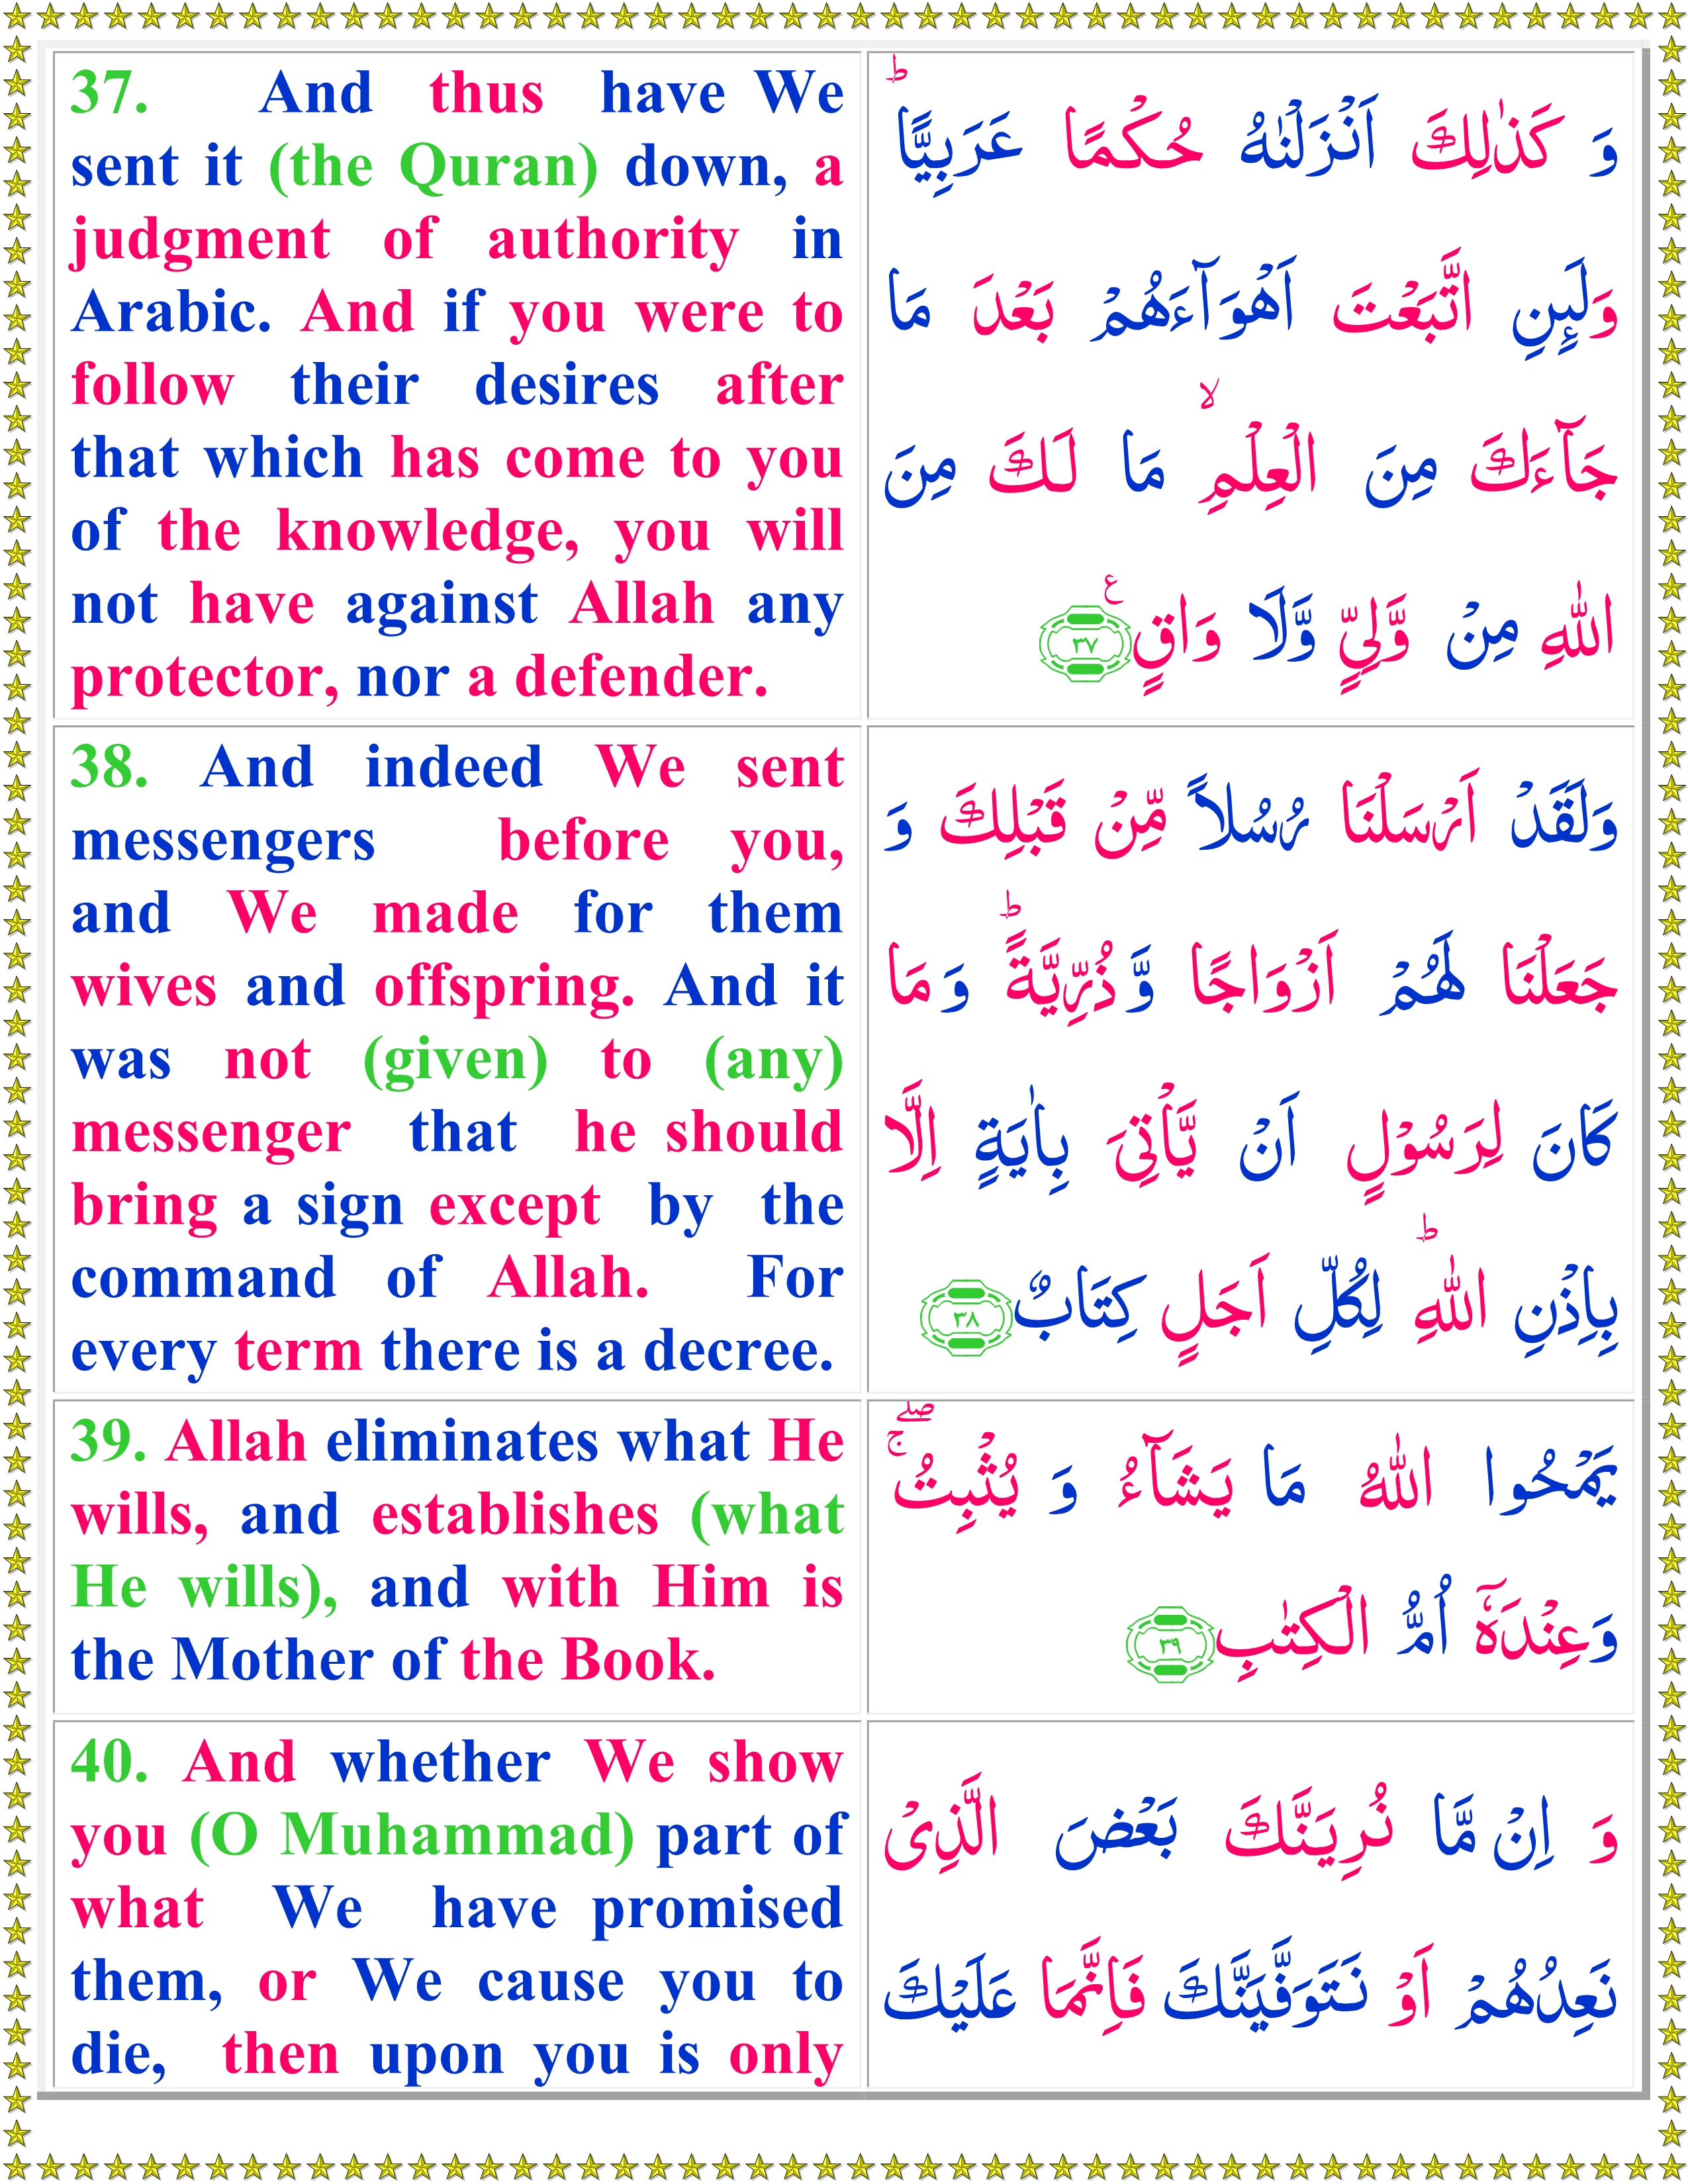 37. And thus have We
sent it (the Quran) down, a
judgment of authority in
Arabic. And if you were to
follow their desires after
that which has come to you
of the knowledge, you will
not have against Allah any
protector, nor a defender.
وَ كَذٰلِكَ اَنْزَلْنٰهُ حُكْمًا عَرَبِيًّا ؕ
وَلَٮِٕنِ اتَّبَعْتَ اَهْوَآءَهُمْ بَعْدَ مَا
جَآءَكَ مِنَ الْعِلْمِ ۙ مَا لَـكَ مِنَ
اللّٰهِ مِنْ وَّلِىٍّ وَّلَا وَاقٍ ࣖ ﴿۳۷﴾
38. And indeed We sent
messengers before you,
and We made for them
wives and offspring. And it
was not (given) to (any)
messenger that he should
bring a sign except by the
command of Allah. For
every term there is a decree.
وَلَقَدْ اَرْسَلْنَا رُسُلاً مِّنْ قَبْلِكَ وَ
جَعَلْنَا لَهُمْ اَزْوَاجًا وَّ ذُرِّيَّةً ؕ وَ مَا
كَانَ لِرَسُوْلٍ اَنْ يَّاْتِىَ بِاٰيَةٍ اِلَّا
بِاِذْنِ اللّٰهِ ؕ لِكُلِّ اَجَلٍ كِتَابٌ ﴿۳۸﴾
39. Allah eliminates what He
wills, and establishes (what
He wills), and with Him is
the Mother of the Book.
يَمْحُوا اللّٰهُ مَا يَشَآءُ وَ يُثْبِتُ ۚ ۖ
وَعِنْدَهٗۤ اُمُّ الْكِتٰبِ ﴿۳۹﴾
40. And whether We show
you (O Muhammad) part of
what We have promised
them, or We cause you to
die, then upon you is only
وَ اِنْ مَّا نُرِيَنَّكَ بَعْضَ الَّذِىْ
نَعِدُهُمْ اَوْ نَتَوَفَّيَنَّكَ فَاِنَّمَا عَلَيْكَ